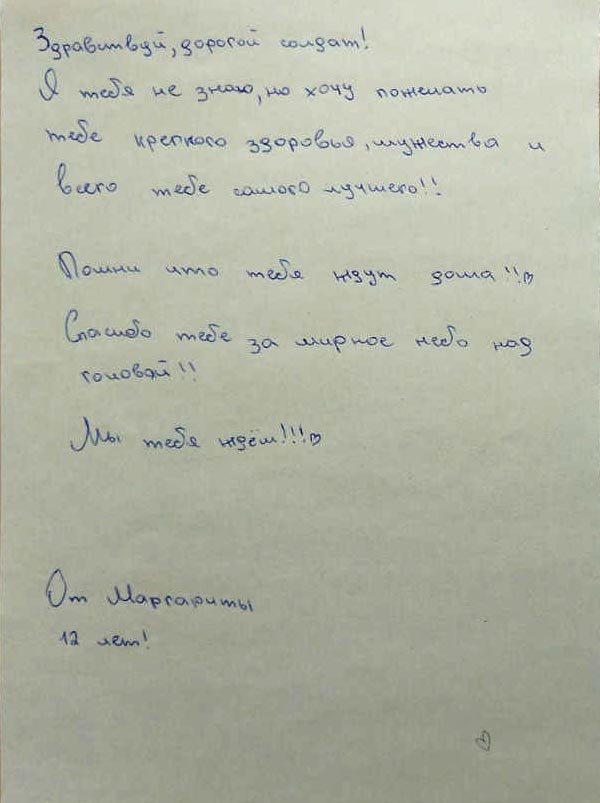 Здравствуй, дорогой солдат!
Я тебя не знаю, но хочу пожелать
тебе крепкого здоровья, мужества и
всего тебе самого лучшего!!
Помни что тебя ждут дома!!♡
Спасибо тебе за мирное небо над
головой!!
Мы тебя ждём!!!♡
От Маргариты
12 лет!
♡